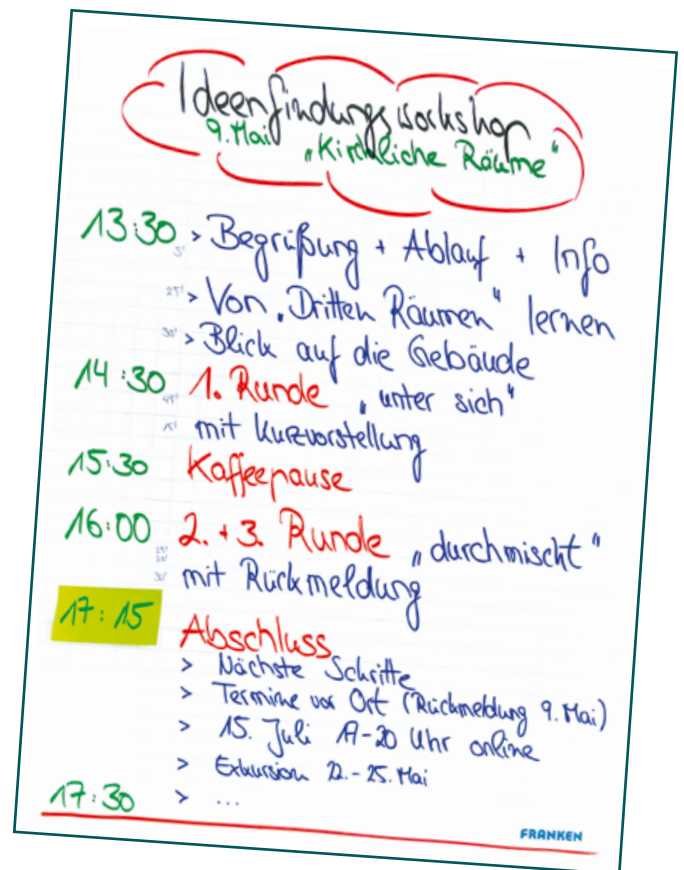 Ideenfindungsworkshop
9. Mai „Kirchliche Räume“
13:30 > Begrüßung + Ablauf + Info
5'
25' > Von „Dritten Räumen“ lernen
30' > Blick auf die Gebäude
14:30 1. Runde „unter sich“
45'
15' mit Kurzvorstellung
15:30 Kaffeepause
16:00 2. + 3. Runde „durchmischt“
30' mit Rückmeldung
17:15 Abschluss
> Nächste Schritte
> Termine vor Ort (Rückmeldung 9. Mai)
> 15. Juli 19-20 Uhr online
> Exkursion 22.-25. Mai
17:30 > ...
FRANKEN